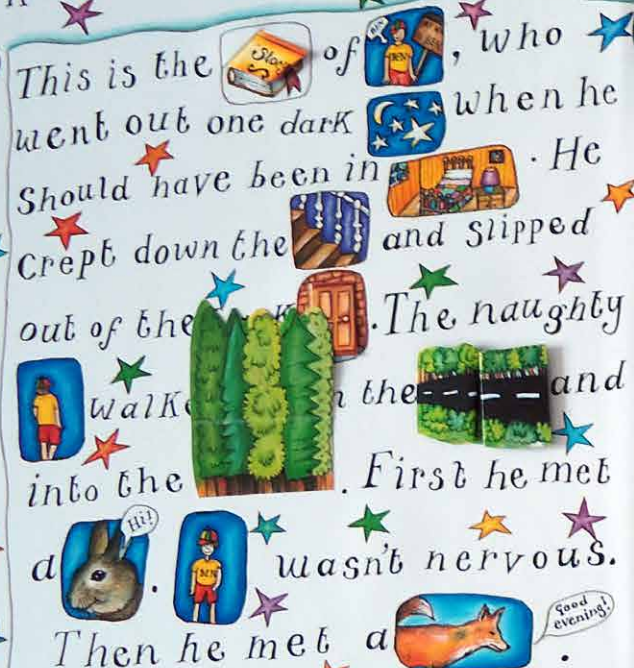 This is the Story of BEN BEN, who
went out one dark when he
Should have been in . He
Crept down the and slipped
out of the . The naughty
walk the and
into the . First he met
a Hi! . BEN wasn't nervous.
Then he met a good evening! .